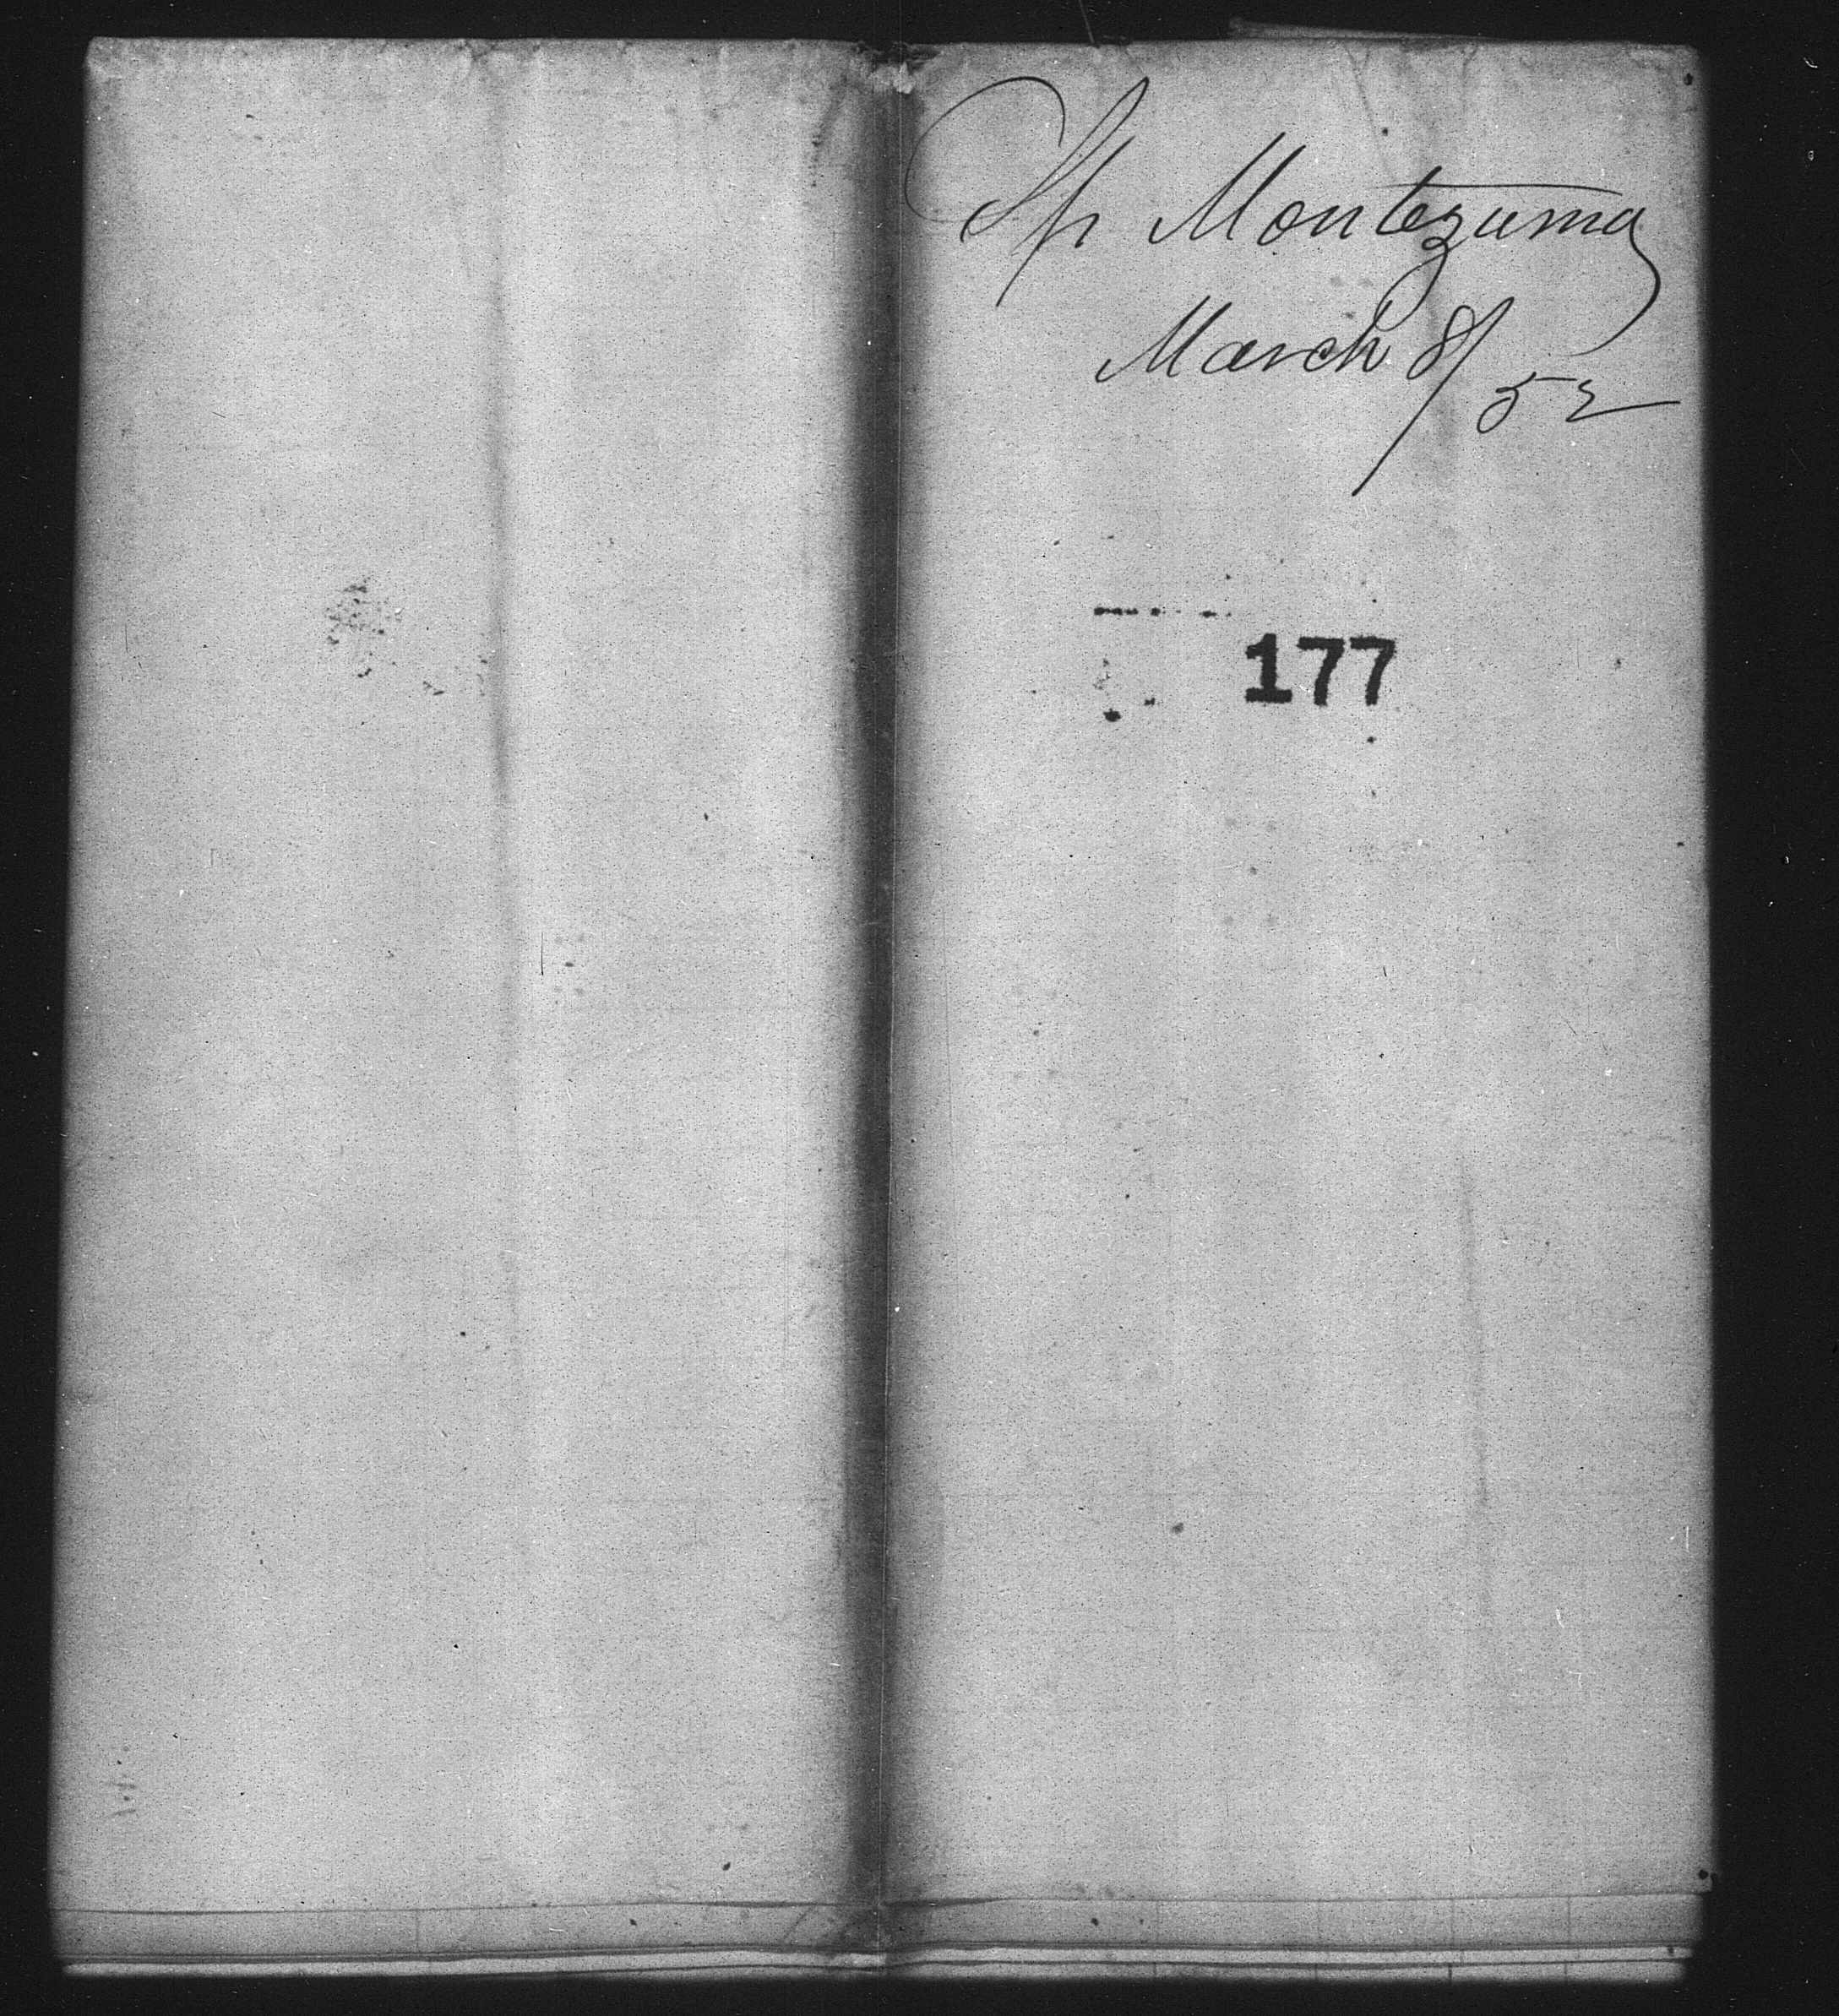 Sp Montezuma
March 8/52
177